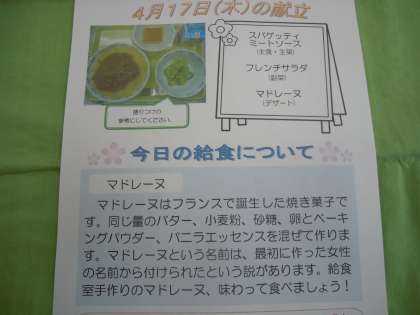 4月17日(水)の献立
スパゲッティ
ミートソース
(主食・主菜)
フレンチサラダ
(副菜)
マドレーヌ
(デザート)
盛りつけの
参考にしてください。
今日の給食について
マドレーヌ
マドレーヌはフランスで誕生した焼き菓子で
す。同じ量のバター、小麦粉、砂糖、卵とベーキ
ングパウダー、バニラエッセンスを混ぜて作りま
す。マドレーヌという名前は、最初に作った女性
の名前から付けられたという説があります。給食
室手作りのマドレーヌ、味わって食べましょう！